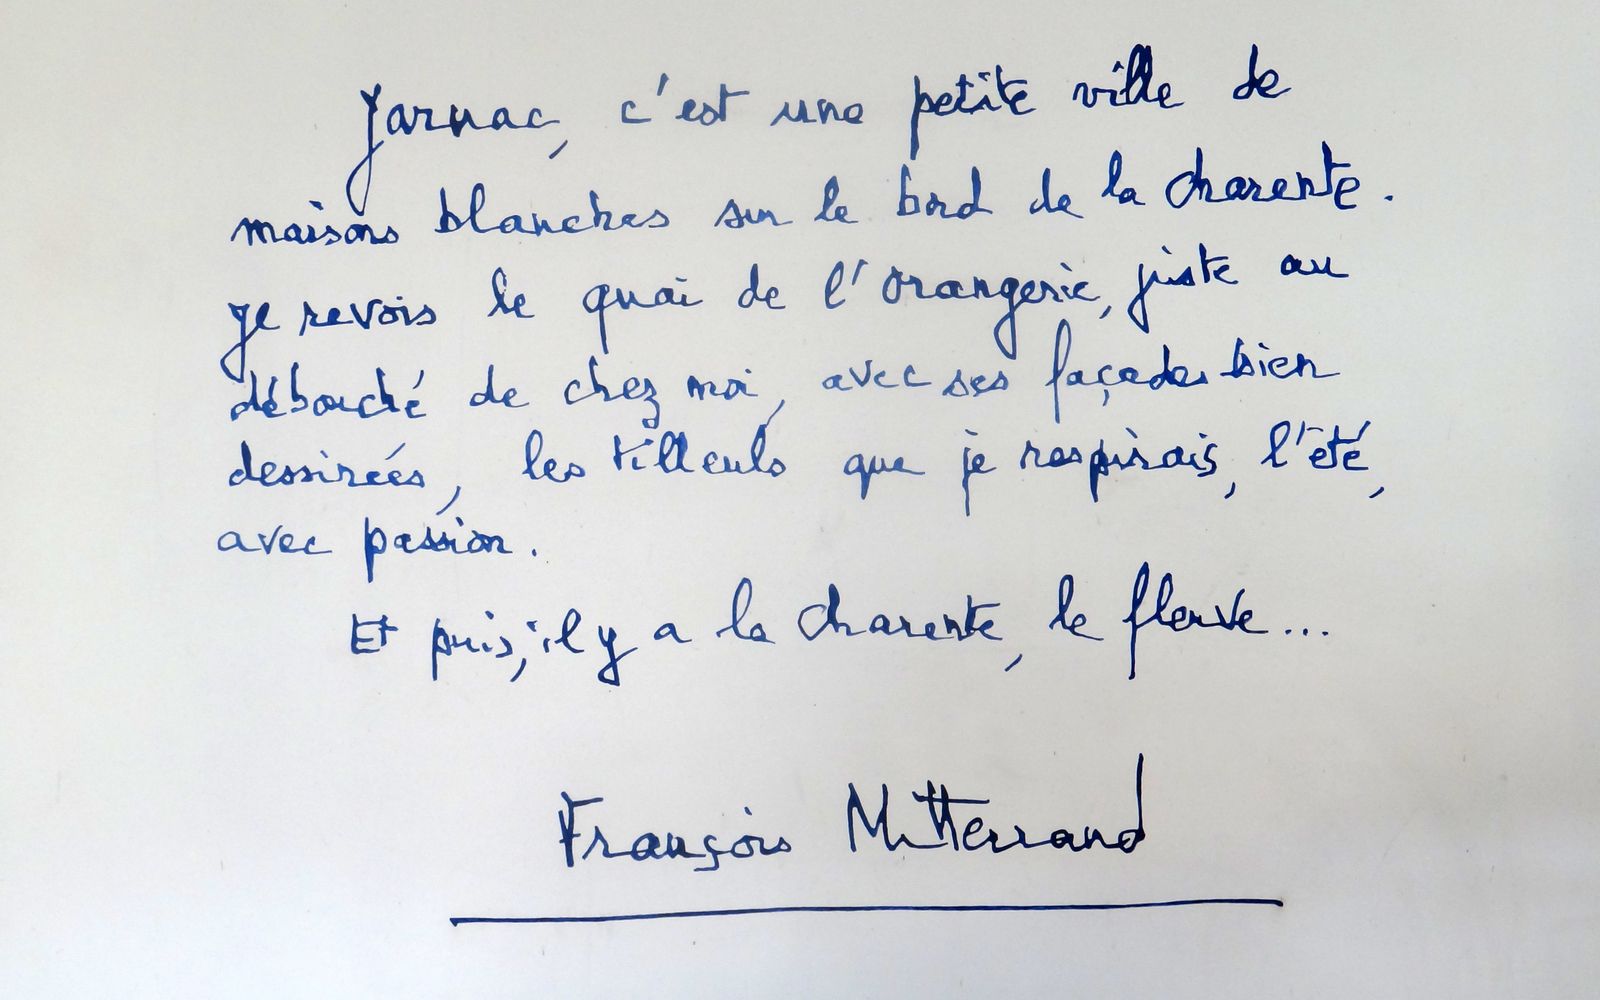 Jarnac, c'est une petite ville de
maisons blanches sur le bord de la Charente.
Je revois le quai de l'Orangerie, juste au
débouché de chez moi, avec ses façades bien
dessinées, les tilleuls que je respirais, l'été,
avec passion.
Et puis, il y a la Charente, le fleuve...
François Mitterrand